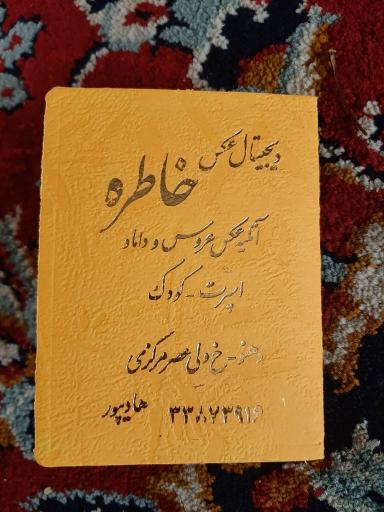 دیجیتال عکس
خاطره
آتلیه عکس عروس و داماد
اسپرت - کودک
خ دلی عصر مرکزی
هادیپور